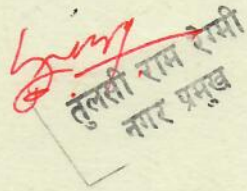 तुलसी राम रोमी
नगर प्रमुख